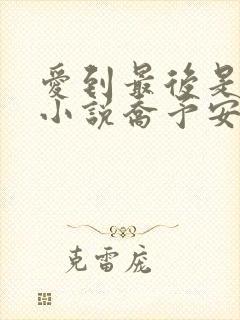 愛到最後是
小說喬予安
克雷庞